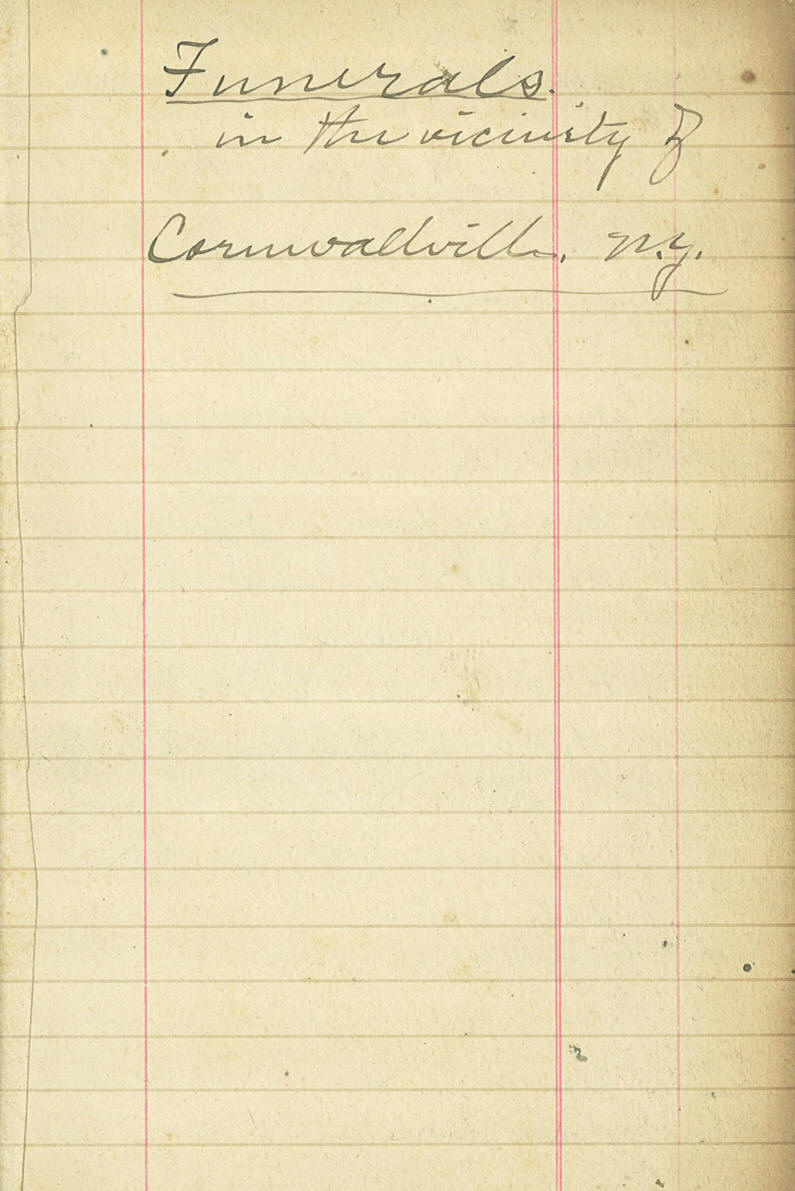 Funerals.
in the vicinity of
Cornwallville, N.Y.